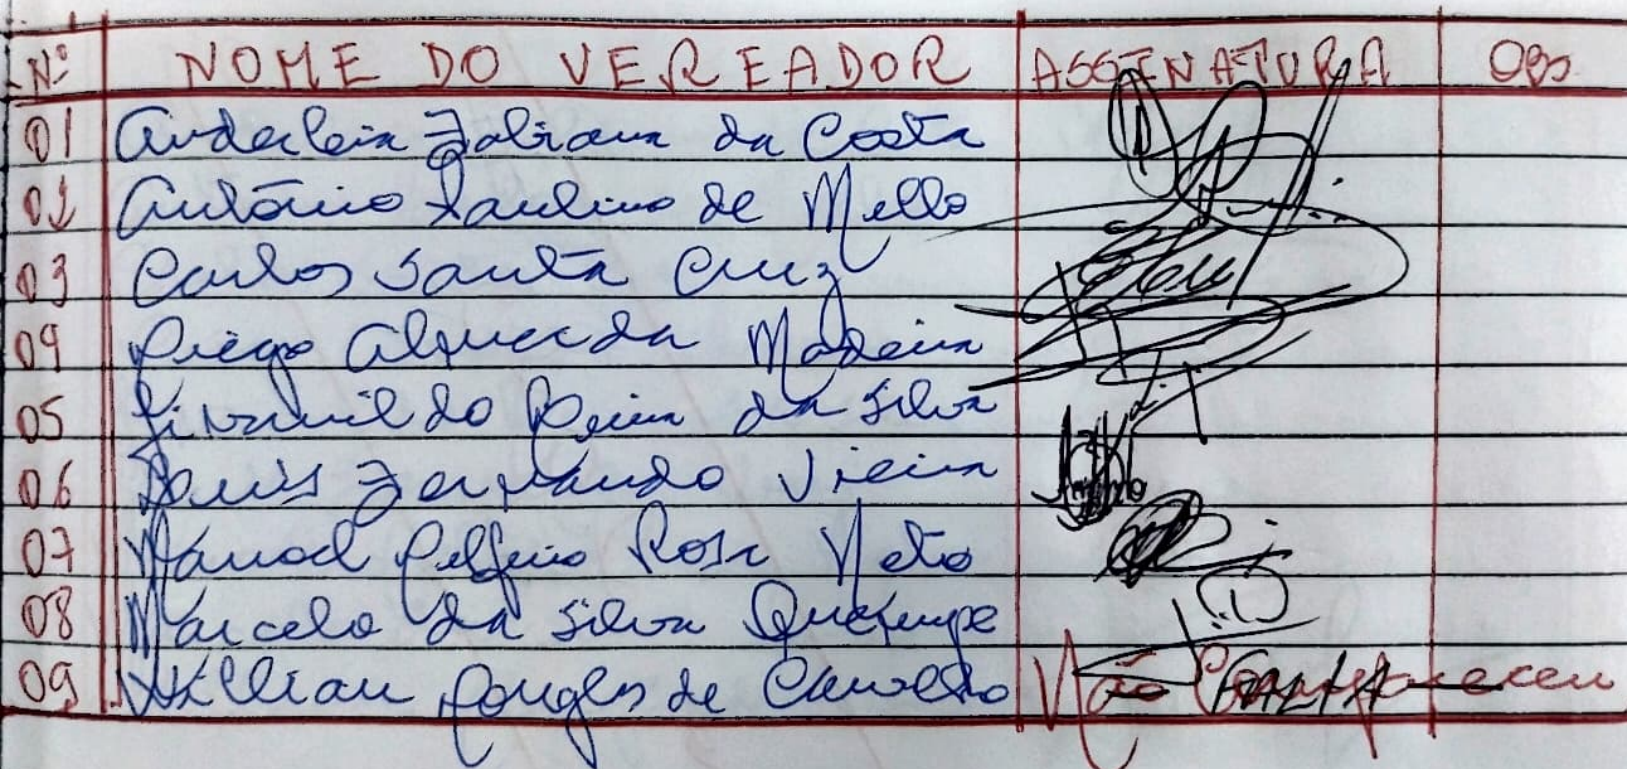 Nº NOME DO VEREADOR ASSINATURA OBS
01 Anderleia Fabiana da Costa
02 Antônio Paulino de Mello
03 Carlos Santa Cruz
04 Diego Almeida Madeira
05 Girvanildo da Silva
06 Fernando Vieira
07 Manoel Delfino Rosa Neto
08 Marcelo da Silva
09 Willian Douglas de Carvalho Não Compareceu FALTA